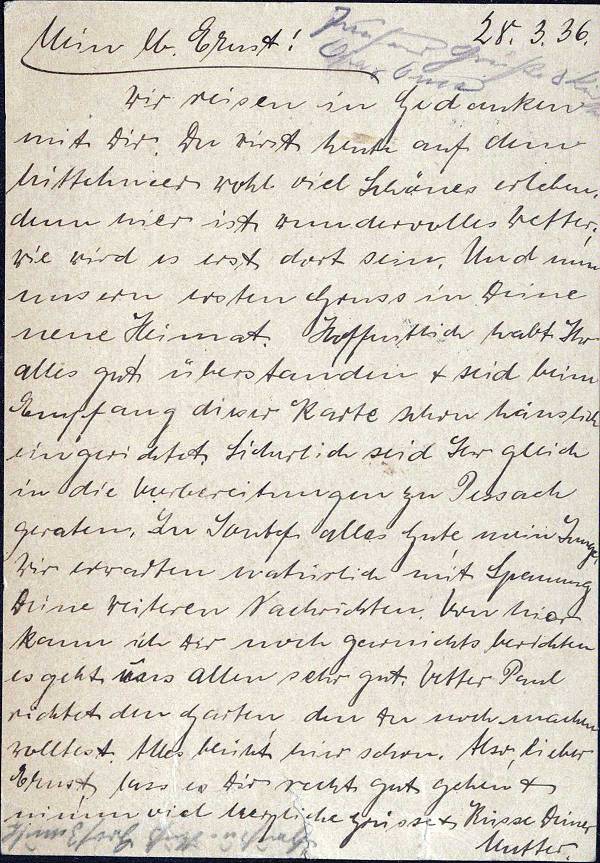 28. 3. 36.
Mein lb. Ernst!
Wir reisen in Gedanken
mit Dir. Du wirst heute auf dem
Mittelmeer wohl viel Schönes erleben,
denn hier ist wundervolles Wetter,
wie wird es erst dort sein. Und nun
unsern ersten Gruss in Deine
neue Heimat. Hoffentlich habt Ihr
alles gut überstanden & seid beim
Empfang dieser Karte schon häuslich
eingerichtet. Sicherlich seid Ihr gleich
in die Vorbereitungen zu Pessach
geraten. Zu Jontef alles Gute mein Junge.
Wir erwarten natürlich mit Spannung
Deine weiteren Nachrichten. Von hier
kann ich Dir noch garnichts berichten
es geht uns allen sehr gut. Vetter Paul
richtet den Garten den Du noch machen
wolltest. Alles blüht hier schon. Also, lieber
Ernst, lass es Dir recht gut gehen &
nimm viel herzliche Grüsse & Küsse Deiner
Mutter.